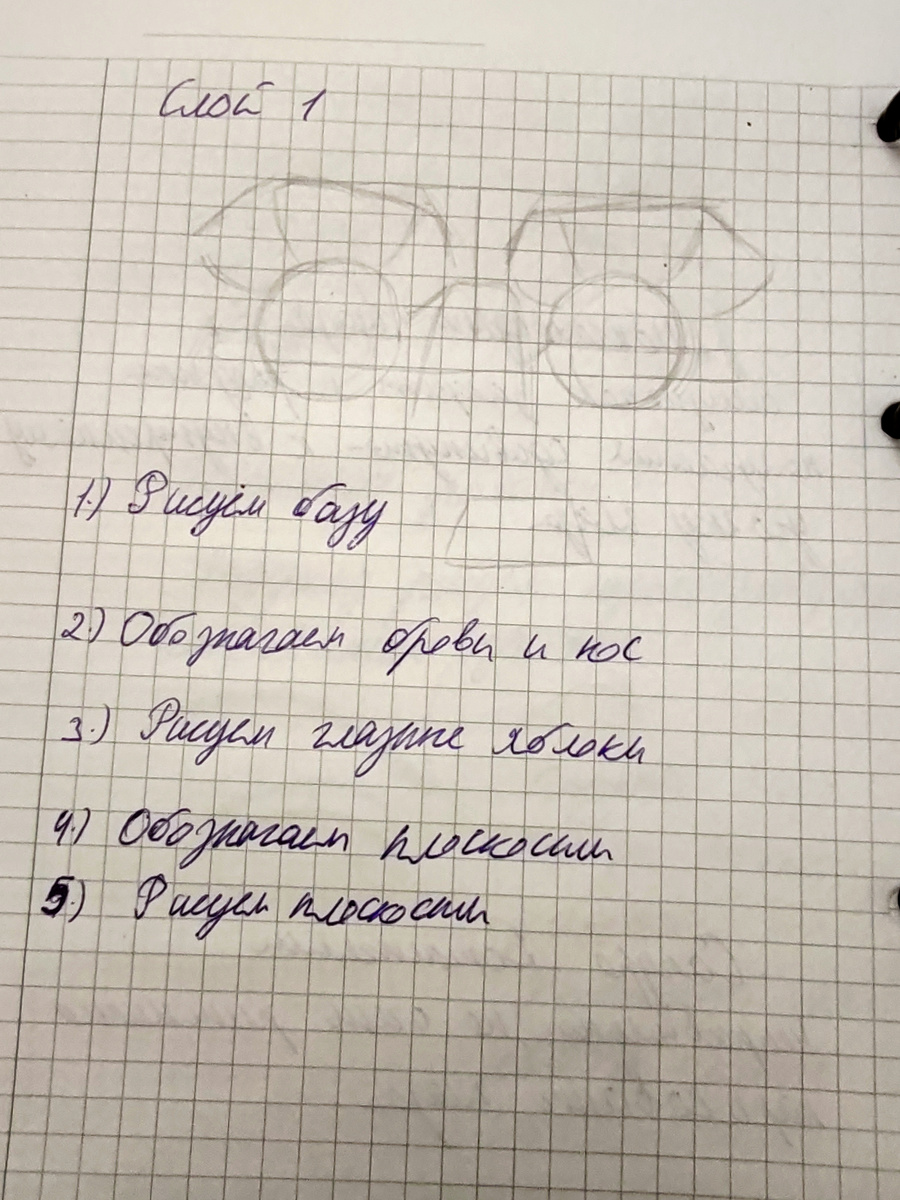 Слой 1
1.) Рисуем базу
2.) Обозначаем брови и нос
3.) Рисуем глазные яблоки
4.) Обозначаем плоскости
5.) Рисуем плоскости